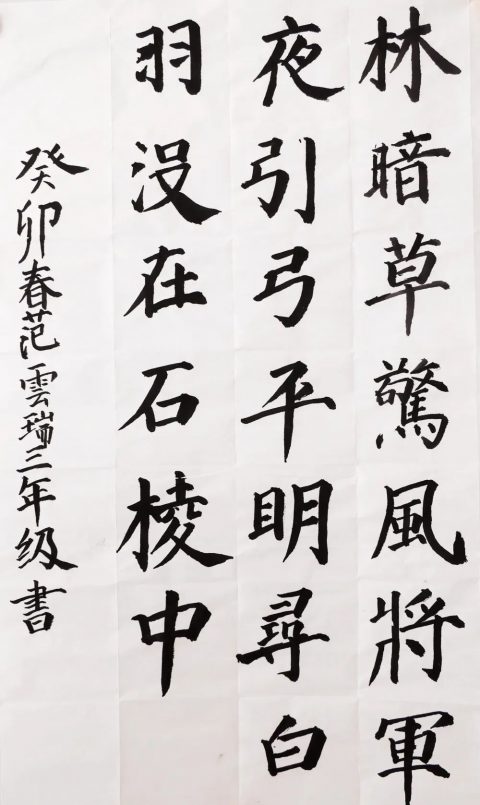 林暗草驚風將軍
夜引弓平明尋白
羽没在石棱中
癸卯春范雲瑞三年级書